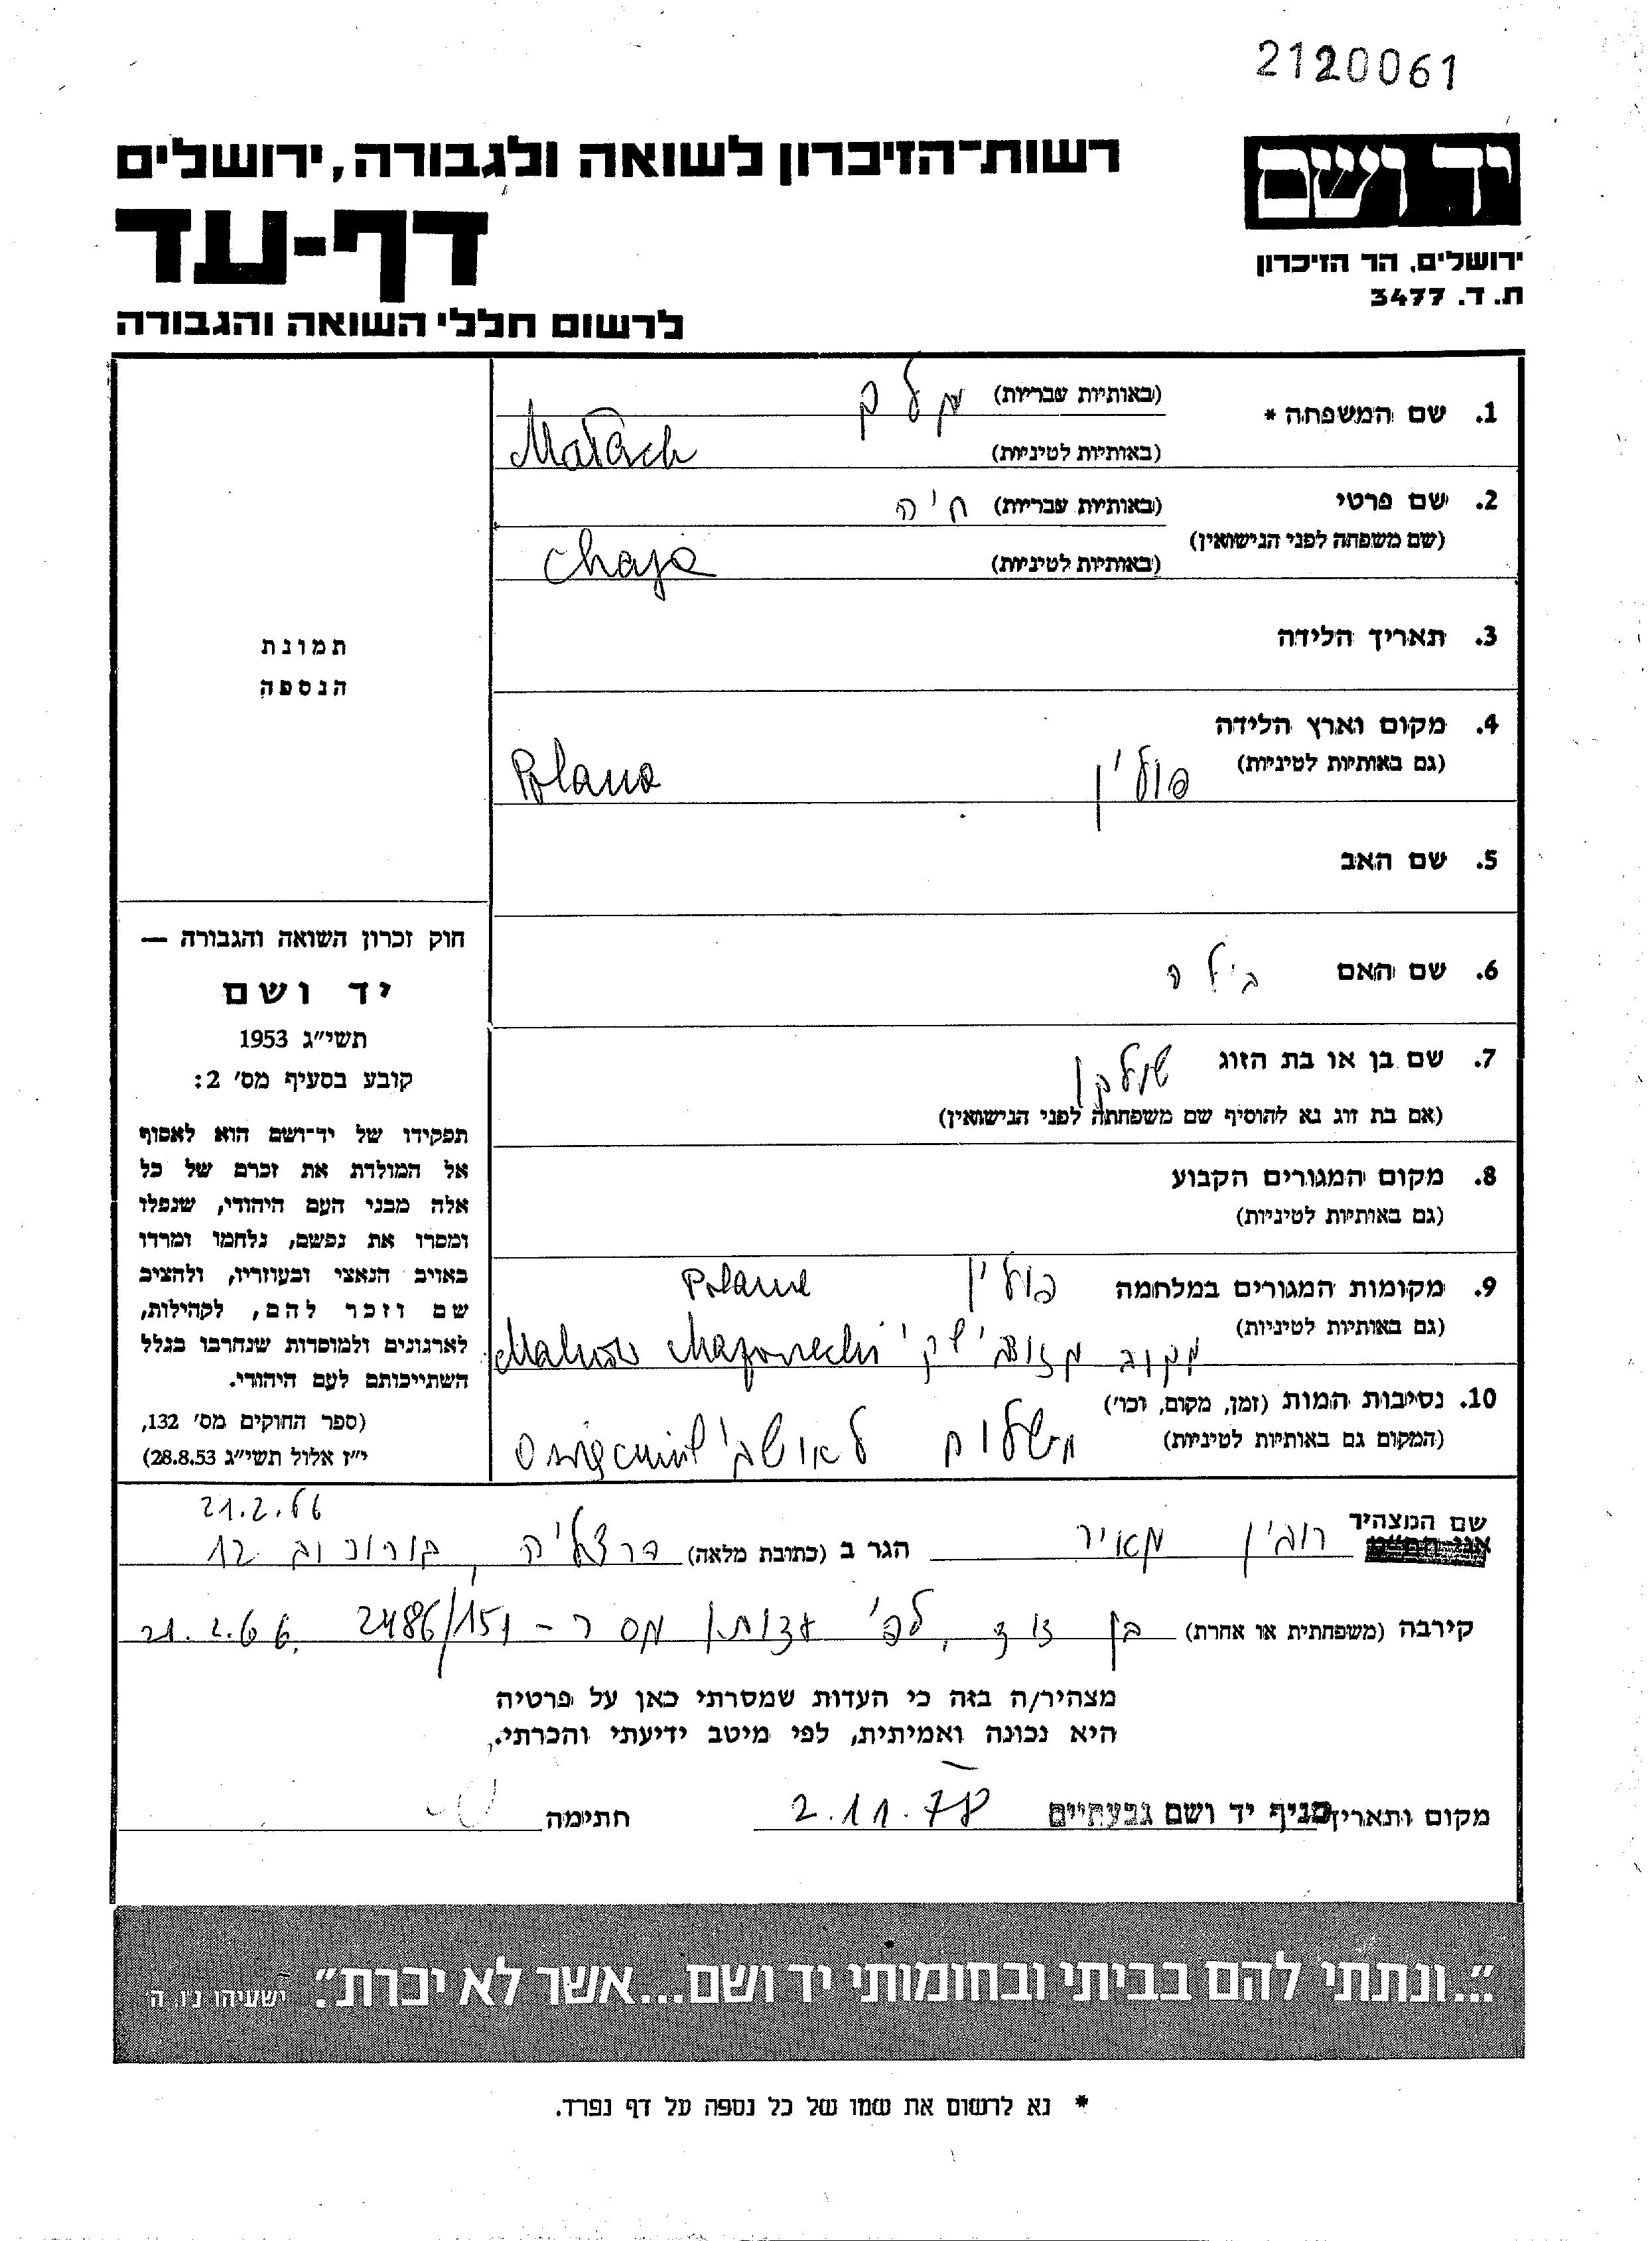 2120061
יד ושם
ירושלים, הר הזיכרון
ת. ד. 3477
רשות-הזיכרון לשואה ולגבורה, ירושלים
דף-עד
לרשום חללי השואה והגבורה
1. שם המשפחה * (באותיות עבריות)
(באותיות לטיניות)
2. שם פרטי (באותיות עבריות) חיה
(שם משפחה לפני הנישואין)
(באותיות לטיניות) Chaja
3. תאריך הלידה
4. מקום וארץ הלידה
(גם באותיות לטיניות) פולין
5. שם האב
6. שם האם
7. שם בן או בת הזוג
(אם בת זוג נא להוסיף שם משפחתה לפני הנישואין)
8. מקום המגורים הקבוע
(גם באותיות לטיניות)
9. מקומות המגורים במלחמה פולין
(גם באותיות לטיניות) מקוב
10. נסיבות המות (זמן, מקום, וכו')
(המקום גם באותיות לטיניות) משלוח
תמונת
הנספה
חוק זכרון השואה והגבורה —
יד ושם
תשי״ג 1953
קובע בסעיף מס' 2:
תפקידו של יד-ושם הוא לאסוף
אל המולדת את זכרם של כל
אלה מבני העם היהודי, שנפלו
ומסרו את נפשם, נלחמו ומרדו
באויב הנאצי ובעוזריו, ולהציב
שם וזכר להם, לקהילות,
לארגונים ולמוסדות שנחרבו בגלל
השתייכותם לעם היהודי.
(ספר החוקים מס' 132,
י״ז אלול תשי״ג 28.8.53)
21.2.66
שם המצהיר רובין מאיר הגר ב (כתובת מלאה) הרצליה, 12
קירבה (משפחתית או אחרת) בן דוד, לפי עדותו מס ר - 2486/151 21.2.66
מצהיר/ה בזה כי העדות שמסרתי כאן על פרטיה
היא נכונה ואמיתית, לפי מיטב ידיעתי והכרתי.
מקום ותאריך סניף יד ושם גבעתיים 2.11.78 חתימה
"...ונתתי להם בביתי ובחומותי יד ושם...אשר לא יכרת". ישעיהו נ"ו, ה'
* נא לרשום את שמו של כל נספה על דף נפרד.